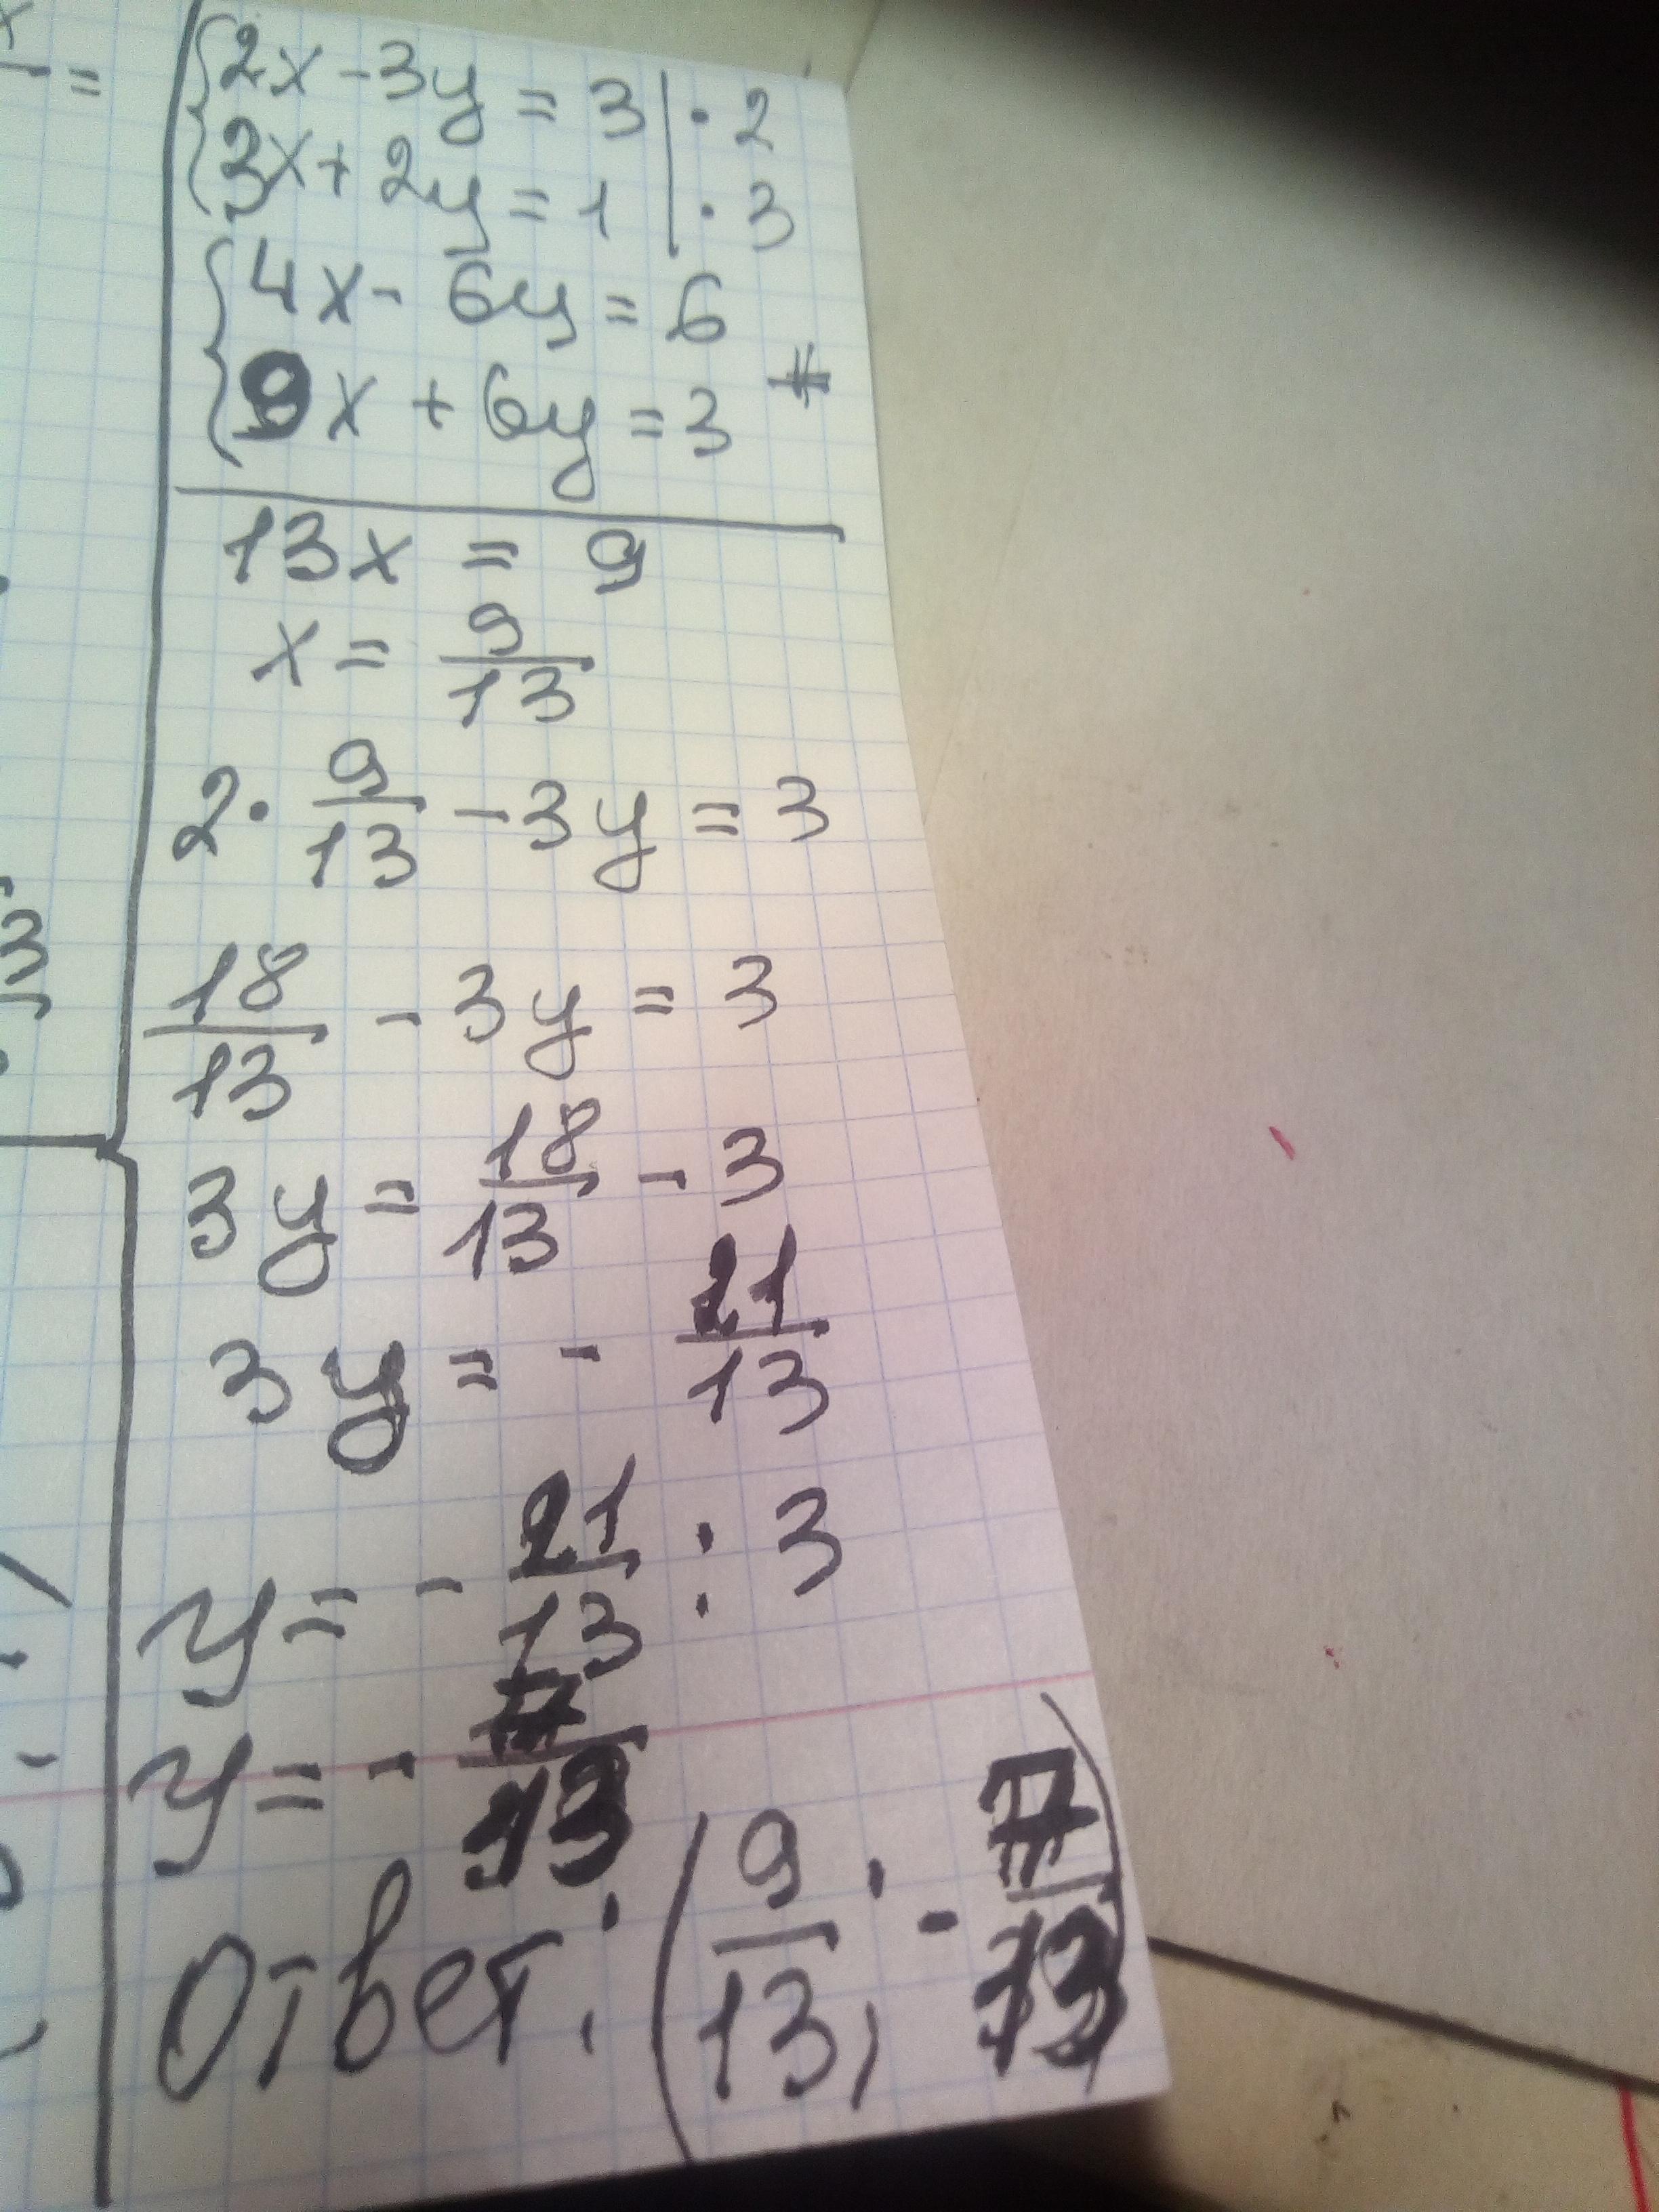 2x - 3y = 3 | · 2
3x + 2y = 1 | · 3
4x - 6y = 6
9x + 6y = 3 +
13x = 9
x = 9/13
2 · 9/13 - 3y = 3
18/13 - 3y = 3
3y = 18/13 - 3
3y = - 21/13
y = - 21/13 : 3
y = - 7/13
Ответ: (9/13; - 7/13)